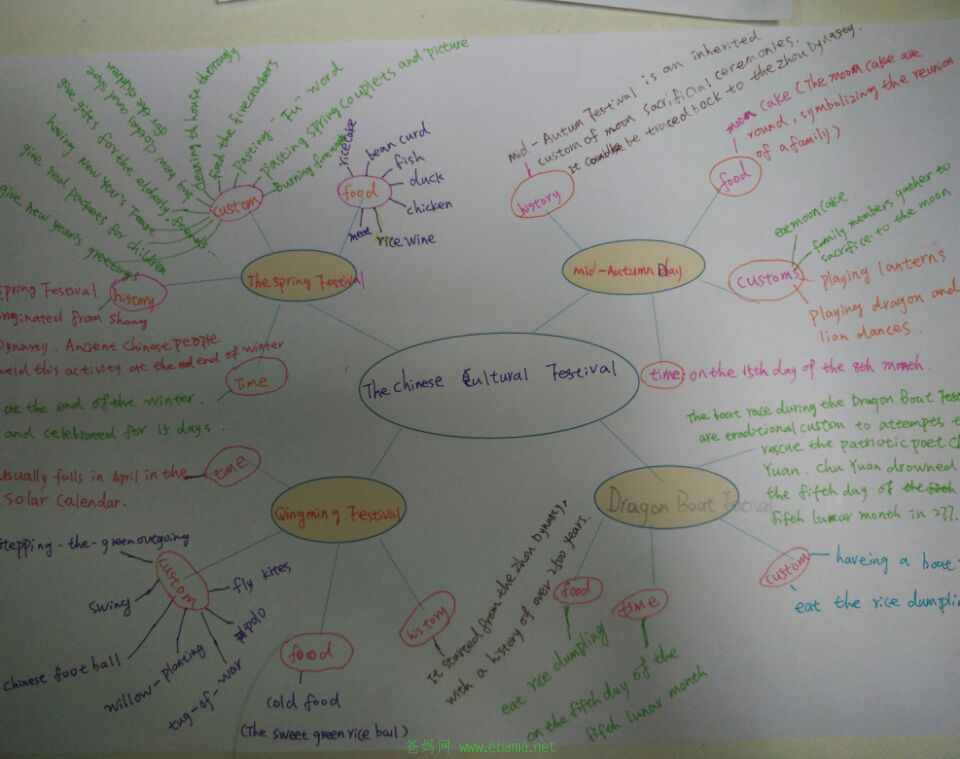 The Chinese Cultural Festival
The Spring Festival
custom
give new year's greetings
give red packets for children
having New Year's Feast
give gifts for the elderly, friends...
hats
cleaning the house thoroughly
feed the firecrackers
Pasting "Fu" word
Pasting Spring Couplets and picture
Burning fireworks
food
rice cake
bean curd
fish
duck
chicken
rice wine
meat
history
Spring Festival
originated from Shang
Dynasty. Ancient Chinese people
held this activity at the end of winter
Time
at the end of the winter.
and celebrated for 15 days.
mid-Autumn Day
history
mid-Autum Festival is an inherited
custom of moon sacrificial ceremonies.
it could be traced back to the zhou Dynasty.
food
moon cake (The moom cake are
round, symbolizing the reunion
of a family)
customs
eat mooncake
family members gather to
sacrifice to the moon
playing lanterns
playing dragon and
lion dances.
time: on the 15th day of the 8th month.
Qingming Festival
time
Usually falls in April in the
Solar Calendar.
custom
stepping-the-green outgoing
swing
chinese football
willow-planting
tug-of-war
polo
fly kites
food
cold food
(The sweet green rice ball)
history
It started from the Zhou Dynasty,
with a history of over 2500 years.
Dragon Boat Festival
The boat race during the Dragon Boat Fest
are traditional custom to attempes t
rescue the patriotic poet C
Yuan. Chu Yuan drowned
the fifth day of the fifth
fifth lunar month in 277.
food
eat rice dumpling
time
on the fifth day of the
fifth lunar month
custom
haveing a boat
eat the rice dumpli
爸妈网 www.ebama.net